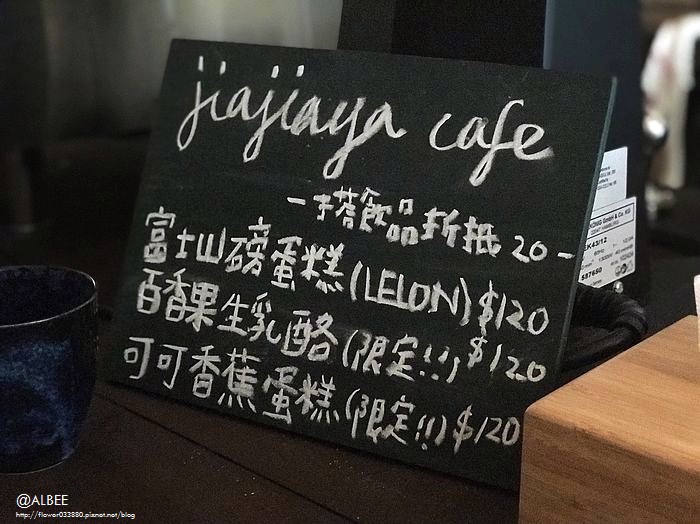 jiajiaya cafe
一搭飲品折抵 20-
富士山磅蛋糕 (LELON) $120
百香果生乳酪 (限定!!) $120
可可香蕉蛋糕 (限定!!) $120
KÖNIG GmbH & Co. KG
EK43/12
@ALBEE
http://flower033880.pixnet.net/blog